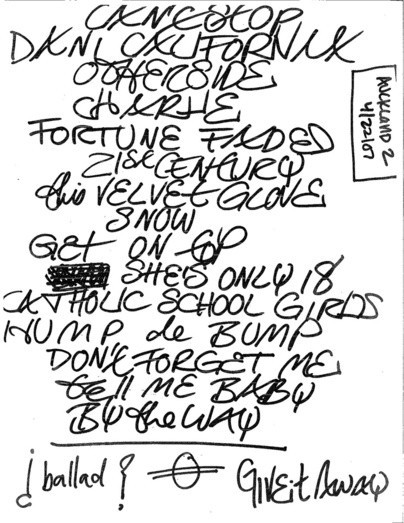 CAN'T STOP
DANI CALIFORNIA
OTHERSIDE
CHARLIE
FORTUNE FADED
21st CENTURY
this VELVET GLOVE
SNOW
GET ON TOP
SHE'S ONLY 18
CATHOLIC SCHOOL GIRLS
HUMP de BUMP
DON'T FORGET ME
tELL ME BABY
BY the WAY
¿ ballad ?
GIVE it AWAY
AUCKLAND 2
4/22/07